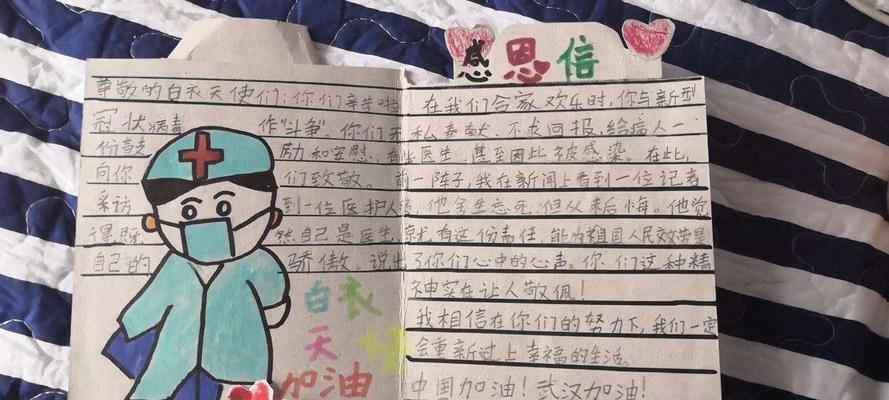 感恩信
尊敬的白衣天使们：你们辛苦啦 在我们合家欢乐时，你与新型
冠状病毒 作“斗争”。你们无私奉献、不求回报，给病人一
份鼓 励和安慰，有些医生，甚至因此被感染。在此，
向你 们致敬。前一阵子，我在新闻上看到一位记者
采访 到一位医护人员，他舍生忘死，但从来后悔。他觉
得既 然自己是医生，就有这份责任，能为祖国人民效劳是
自己的 骄傲。说出了你们心中的心声。你们这种精
神实在让人敬佩！
我相信在你们的努力下，我们一定
会重新过上幸福的生活。
中国加油！武汉加油！
白衣
天使
加油